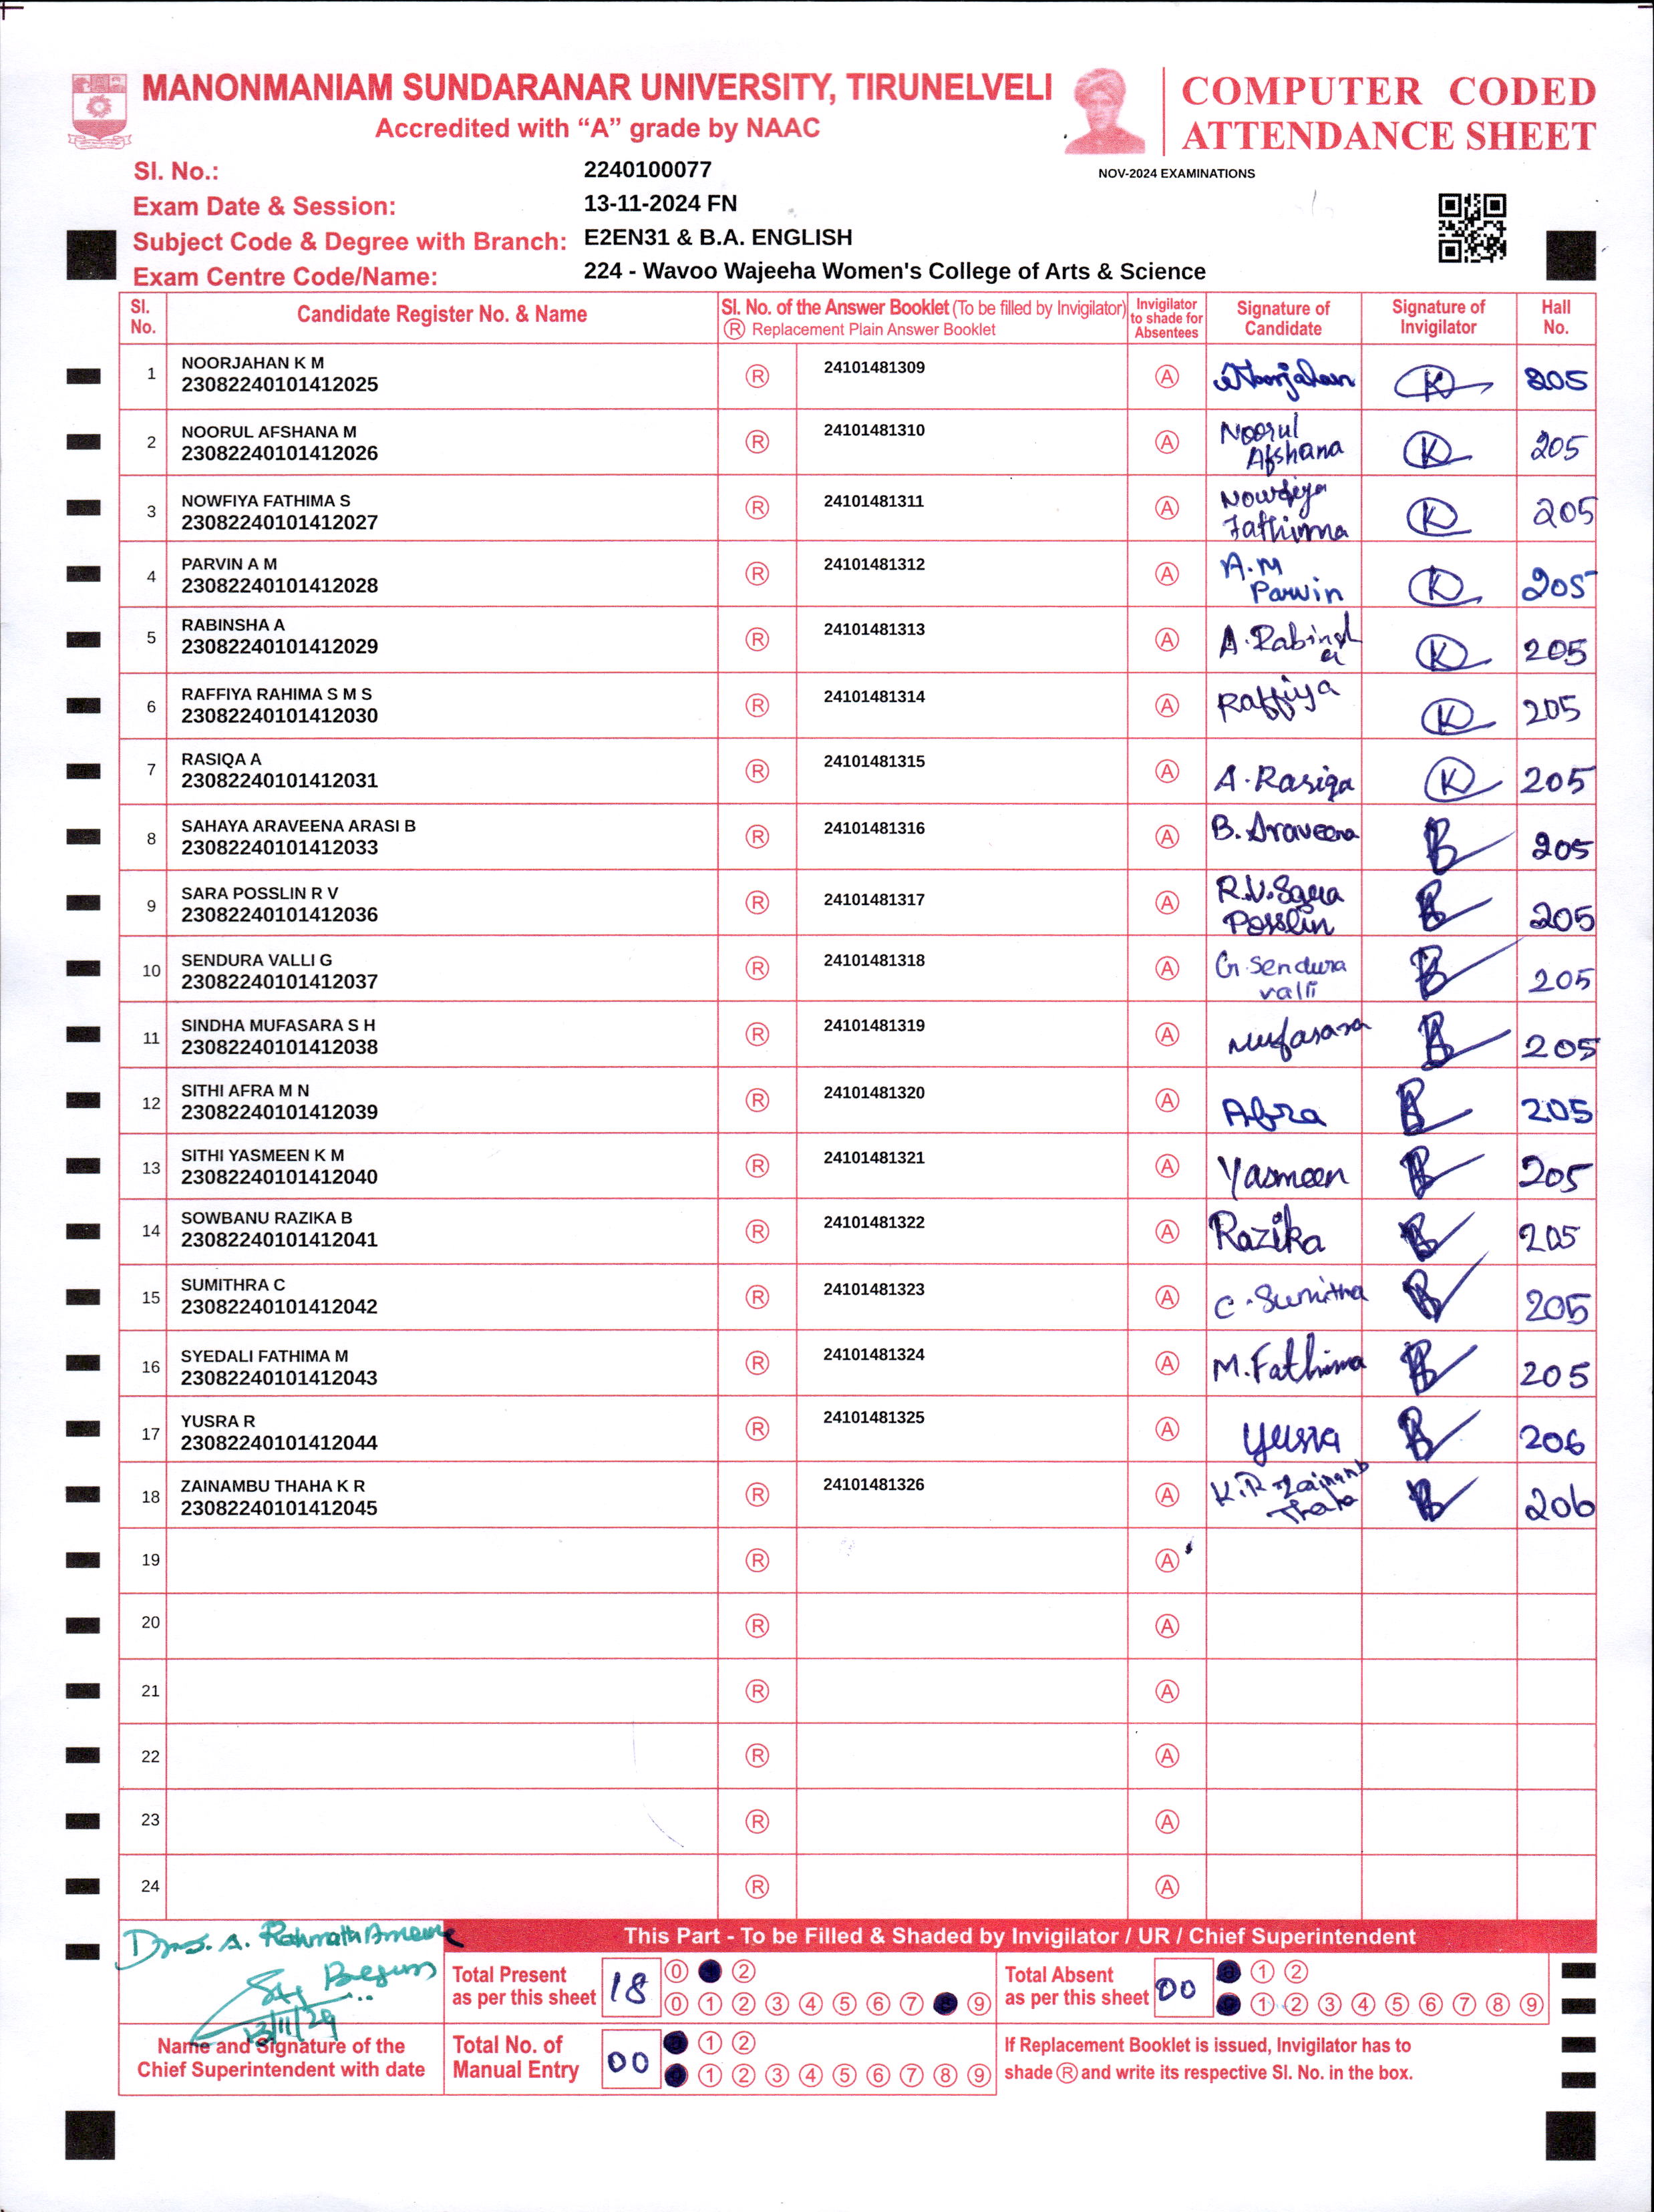 MANONMANIAM SUNDARANAR UNIVERSITY, TIRUNELVELI
Accredited with “A” grade by NAAC
COMPUTER CODED
ATTENDANCE SHEET
NOV-2024 EXAMINATIONS
Sl. No.: 2240100077
Exam Date & Session: 13-11-2024 FN
Subject Code & Degree with Branch: E2EN31 & B.A. ENGLISH
Exam Centre Code/Name: 224 - Wavoo Wajeeha Women's College of Arts & Science
Sl. No. Candidate Register No. & Name Sl. No. of the Answer Booklet (To be filled by Invigilator) Ⓡ Replacement Plain Answer Booklet Invigilator to shade for Absentees Signature of Candidate Signature of Invigilator Hall No.
1 NOORJAHAN K M 23082240101412025 Ⓡ 24101481309 Ⓐ Noorjahan K 205
2 NOORUL AFSHANA M 23082240101412026 Ⓡ 24101481310 Ⓐ Noorul Afshana K 205
3 NOWFIYA FATHIMA S 23082240101412027 Ⓡ 24101481311 Ⓐ Nowfiya Fathima K 205
4 PARVIN A M 23082240101412028 Ⓡ 24101481312 Ⓐ A.M Parvin K 205
5 RABINSHA A 23082240101412029 Ⓡ 24101481313 Ⓐ A. Rabinsha K 205
6 RAFFIYA RAHIMA S M S 23082240101412030 Ⓡ 24101481314 Ⓐ Raffiya K 205
7 RASIQA A 23082240101412031 Ⓡ 24101481315 Ⓐ A. Rasiqa K 205
8 SAHAYA ARAVEENA ARASI B 23082240101412033 Ⓡ 24101481316 Ⓐ B. Araveena 205
9 SARA POSSLIN R V 23082240101412036 Ⓡ 24101481317 Ⓐ R.V. Sara Posslin 205
10 SENDURA VALLI G 23082240101412037 Ⓡ 24101481318 Ⓐ G. Sendura valli 205
11 SINDHA MUFASARA S H 23082240101412038 Ⓡ 24101481319 Ⓐ Mufasara 205
12 SITHI AFRA M N 23082240101412039 Ⓡ 24101481320 Ⓐ Afra 205
13 SITHI YASMEEN K M 23082240101412040 Ⓡ 24101481321 Ⓐ Yasmeen 205
14 SOWBANU RAZIKA B 23082240101412041 Ⓡ 24101481322 Ⓐ Razika 205
15 SUMITHRA C 23082240101412042 Ⓡ 24101481323 Ⓐ C. Sumithra 205
16 SYEDALI FATHIMA M 23082240101412043 Ⓡ 24101481324 Ⓐ M. Fathima 205
17 YUSRA R 23082240101412044 Ⓡ 24101481325 Ⓐ Yusra 206
18 ZAINAMBU THAHA K R 23082240101412045 Ⓡ 24101481326 Ⓐ K.R Zainamb Thaha 206
19 Ⓡ Ⓐ
20 Ⓡ Ⓐ
21 Ⓡ Ⓐ
22 Ⓡ Ⓐ
23 Ⓡ Ⓐ
24 Ⓡ Ⓐ
A. Rahmath Ameena Begum
Name and Signature of the
Chief Superintendent with date
This Part - To be Filled & Shaded by Invigilator / UR / Chief Superintendent
Total Present as per this sheet 18
0 2
0 1 2 3 4 5 6 7 9
Total Absent as per this sheet 00
1 2
1 2 3 4 5 6 7 8 9
Total No. of Manual Entry 00
1 2
1 2 3 4 5 6 7 8 9
If Replacement Booklet is issued, Invigilator has to
shade Ⓡ and write its respective Sl. No. in the box.